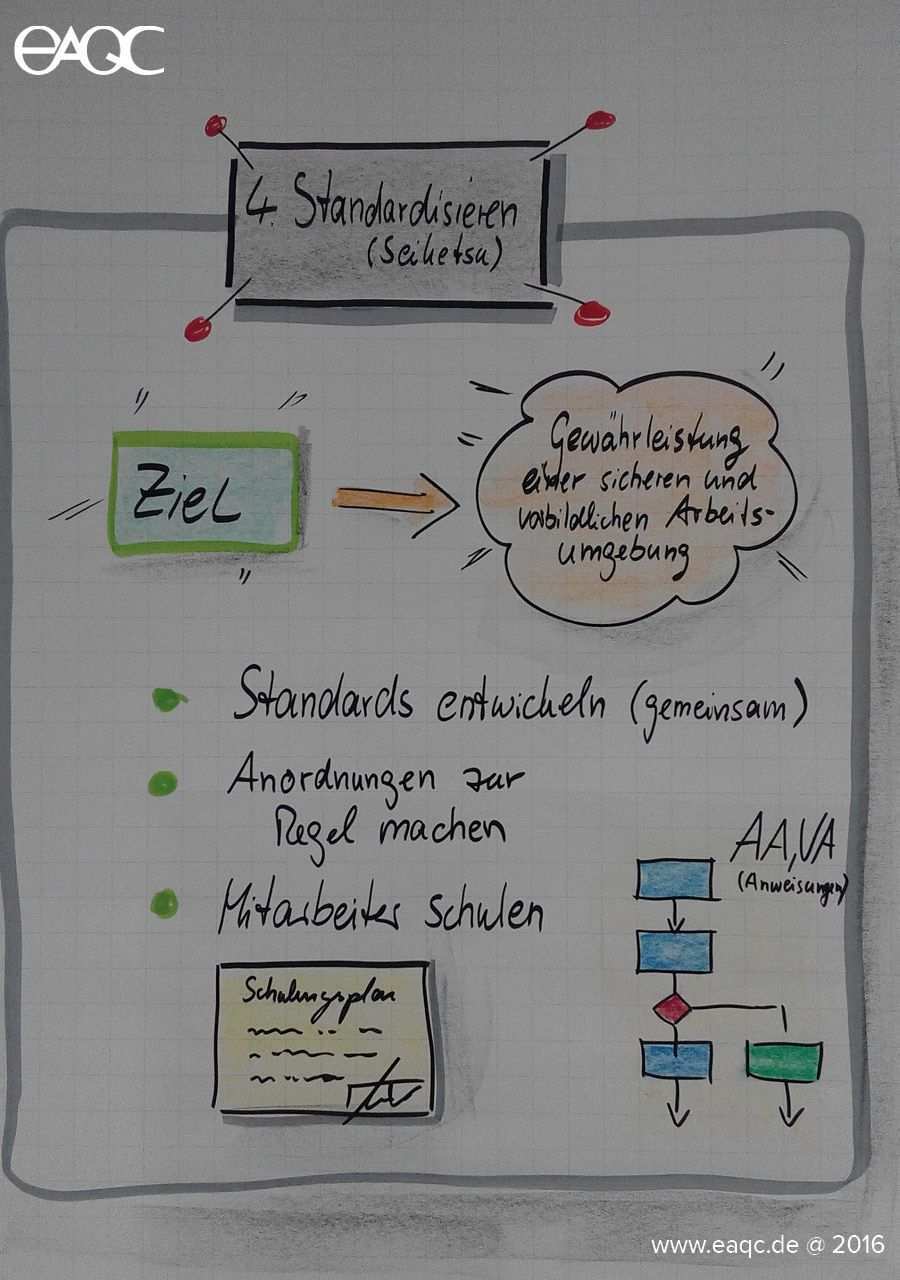 EAQC
4. Standardisieren
(Seiketsu)
Ziel
Gewährleistung
einer sicheren und
vorbildlichen Arbeits-
umgebung
Standards entwickeln (gemeinsam)
Anordnungen zur
Regel machen
Mitarbeiter schulen
AA, VA
(Anweisungen)
Schulungsplan
www.eaqc.de @ 2016